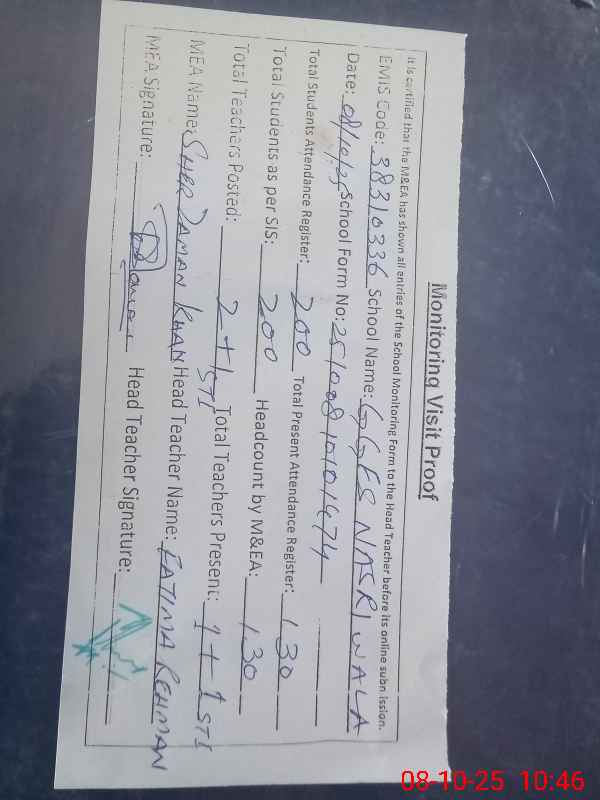 Monitoring Visit Proof
It is certified that the M&EA has shown all entries of the School Monitoring Form to the Head Teacher before its online submission.
EMIS Code: 38310336 School Name: GGES NASRI WALA
Date: 08/10/25 School Form No: 25100810101474
Total Students Attendance Register: 200 Total Present Attendance Register: 130
Total Students as per SIS: 200 Headcount by M&EA: 130
Total Teachers Posted: 2+1 STI Total Teachers Present: 1+1 STI
MEA Name: SHER ZAMAN KHAN Head Teacher Name: FATIMA REHMAN
MEA Signature: Head Teacher Signature:
08-10-25 10:46